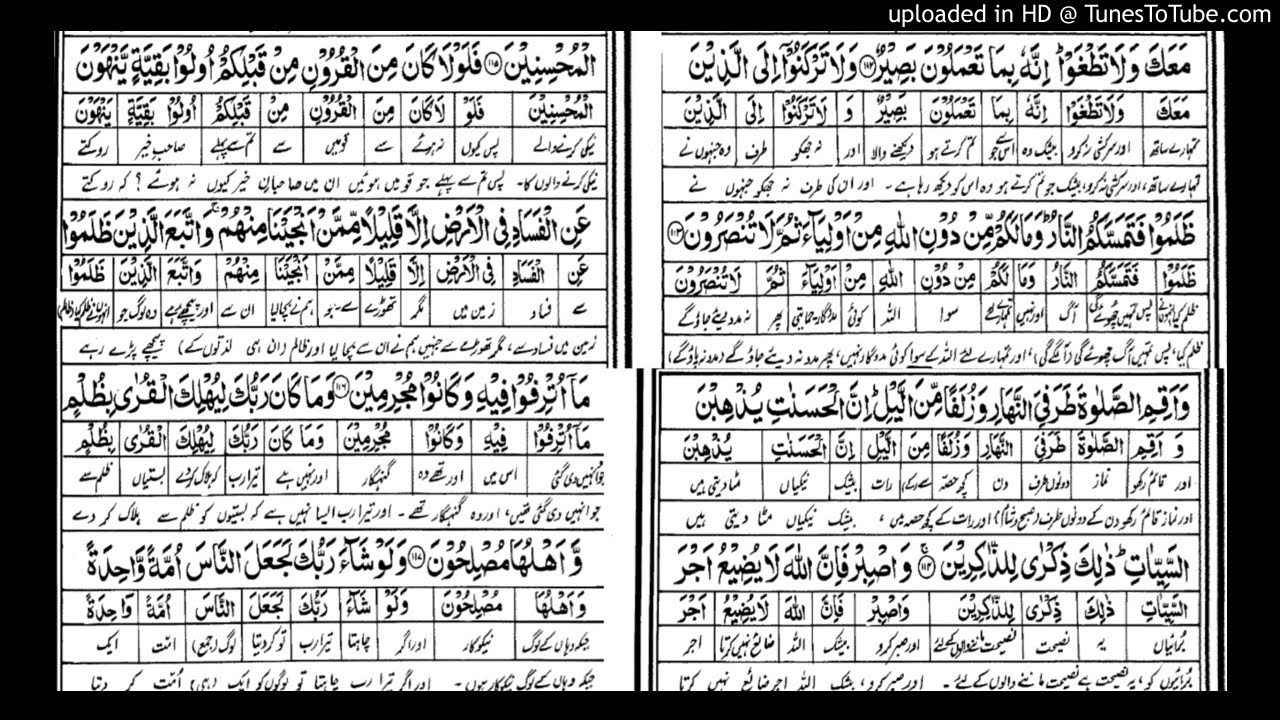 uploaded in HD @ TunesToTube.com
مَعَكَ وَلَا تَطْغَوْا اِنَّهٗ بِمَا تَعْمَلُوْنَ بَصِيْرٌ ۝۱۱۲ وَلَا تَرْكَنُوْٓا اِلَى الَّذِيْنَ
مَعَكَ وَلَا تَطْغَوْا اِنَّهٗ بِمَا تَعْمَلُوْنَ بَصِيْرٌ وَ لَا تَرْكَنُوْٓا اِلَى الَّذِيْنَ
تمہارے ساتھ اور سرکشی نہ کرو بیشک وہ اس کو جو تم کرتے ہو دیکھنے والا اور نہ جھکو طرف وہ جنہوں نے
تمہارے ساتھ، اور سرکشی نہ کرو، بیشک جو تم کرتے ہو وہ اس کو دیکھ رہا ہے۔ اور ان کی طرف نہ جھکو جنہوں نے
ظَلَمُوْا فَتَمَسَّكُمُ النَّارُ وَمَا لَكُمْ مِّنْ دُوْنِ اللّٰهِ مِنْ اَوْلِيَآءَ ثُمَّ لَا تُنْصَرُوْنَ ۝۱۱۳
ظَلَمُوْا فَتَمَسَّكُمُ النَّارُ وَمَا لَكُمْ مِنْ دُوْنِ اللّٰهِ مِنْ اَوْلِيَآءَ ثُمَّ لَا تُنْصَرُوْنَ
ظلم کیا انہوں نے پس تمہیں چھوئے گی آگ اور نہیں تمہارے لئے سوا اللہ کوئی مددگار حمایتی پھر نہ مدد دیئے جاؤ گے
ظلم کیا، پس تمہیں آگ چھوئے گی (آ لگے گی)، اور تمہارے لئے اللہ کے سوا کوئی مددگار نہیں، پھر مدد نہ دیئے جاؤ گے (مدد نہ پاؤ گے)
وَاَقِمِ الصَّلٰوةَ طَرَفَيِ النَّهَارِ وَزُلَفًا مِّنَ الَّيْلِ ؕ اِنَّ الْحَسَنٰتِ يُذْهِبْنَ
وَ اَقِمِ الصَّلٰوةَ طَرَفَيِ النَّهَارِ وَزُلَفًا مِنَ الَّيْلِ اِنَّ الْحَسَنٰتِ يُذْهِبْنَ
اور قائم رکھو نماز دونوں طرف دن کچھ حصہ سے (کے) رات بیشک نیکیاں مٹا دیتی ہیں
اور نماز قائم رکھو دن کے دونوں طرف (صبح و شام)، اور رات کے کچھ حصہ میں، بیشک نیکیاں مٹا دیتی ہیں
السَّيِّاٰتِ ؕ ذٰلِكَ ذِكْرٰى لِلذّٰكِرِيْنَ ۝۱۱۴ وَاصْبِرْ فَاِنَّ اللّٰهَ لَا يُضِيْعُ اَجْرَ
السَّيِّاٰتِ ذٰلِكَ ذِكْرٰى لِلذّٰكِرِيْنَ وَاصْبِرْ فَاِنَّ اللّٰهَ لَا يُضِيْعُ اَجْرَ
برائیاں یہ نصیحت نصیحت ماننے والوں کے لئے اور صبر کرو بیشک اللہ ضائع نہیں کرتا اجر
برائیوں کو، یہ نصیحت ہے نصیحت ماننے والوں کے لئے۔ اور صبر کرو، بیشک اللہ اجر ضائع نہیں کرتا
الْمُحْسِنِيْنَ ۝۱۱۵ فَلَوْلَا كَانَ مِنَ الْقُرُوْنِ مِنْ قَبْلِكُمْ اُولُوْا بَقِيَّةٍ يَّنْهَوْنَ
الْمُحْسِنِيْنَ فَلَوْ لَا كَانَ مِنَ الْقُرُوْنِ مِنْ قَبْلِكُمْ اُولُوْا بَقِيَّةٍ يَنْهَوْنَ
نیکی کرنے والے پس کیوں نہ ہوئے سے قومیں سے تم سے پہلے صاحب خیر روکتے
نیکی کرنے والوں کا۔ پس تم سے پہلے جو قومیں ہوئیں ان میں صاحبان خیر کیوں نہ ہوئے؟ کہ روکتے
عَنِ الْفَسَادِ فِي الْاَرْضِ اِلَّا قَلِيْلًا مِّمَّنْ اَنْجَيْنَا مِنْهُمْ ۚ وَاتَّبَعَ الَّذِيْنَ ظَلَمُوْا
عَنِ الْفَسَادِ فِي الْاَرْضِ اِلَّا قَلِيْلًا مِمَّنْ اَنْجَيْنَا مِنْهُمْ وَاتَّبَعَ الَّذِيْنَ ظَلَمُوْا
سے فساد زمین میں مگر تھوڑے سے۔ جو ہم نے بچا لیا ان سے اور پیچھے رہے وہ لوگ جو انہوں نے ظلم کیا (ظالم)
زمین میں فساد سے، مگر تھوڑے سے جنہیں ہم نے ان سے بچا لیا اور ظالم (ان ہی لذتوں کے) پیچھے پڑے رہے
مَآ اُتْرِفُوْا فِيْهِ وَكَانُوْا مُجْرِمِيْنَ ۝۱۱۶ وَمَا كَانَ رَبُّكَ لِيُهْلِكَ الْقُرٰى بِظُلْمٍ
مَآ اُتْرِفُوْا فِيْهِ وَكَانُوْا مُجْرِمِيْنَ وَمَا كَانَ رَبُّكَ لِيُهْلِكَ الْقُرٰى بِظُلْمٍ
جو انہیں دی گئی اس میں اور تھے وہ گنہگار اور نہیں ہے تیرا رب کہ ہلاک کر دے بستیاں ظلم سے
جو انہیں دی گئی تھیں، اور وہ گنہگار تھے۔ اور تیرا رب ایسا نہیں ہے کہ بستیوں کو ظلم سے ہلاک کر دے
وَّاَهْلُهَا مُصْلِحُوْنَ ۝۱۱۷ وَلَوْ شَآءَ رَبُّكَ لَجَعَلَ النَّاسَ اُمَّةً وَّاحِدَةً
وَاَهْلُهَا مُصْلِحُوْنَ وَلَوْ شَآءَ رَبُّكَ لَجَعَلَ النَّاسَ اُمَّةً وَاحِدَةً
جبکہ وہاں کے لوگ نیکوکار اور اگر چاہتا تیرا رب تو کر دیتا لوگ (جمع) امت ایک
جبکہ وہاں کے لوگ نیکوکار ہوں۔ اور اگر تیرا رب چاہتا تو لوگوں کو ایک (ہی) امت کر دیتا